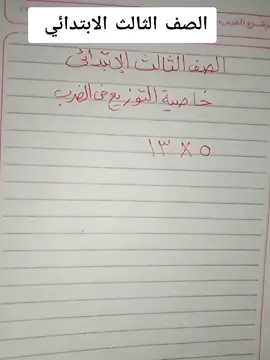 الصف الثالث الابتدائي
الصف الثالث الإبتدائى
خاصية التوزيع فى الضرب
١٣ × ٥